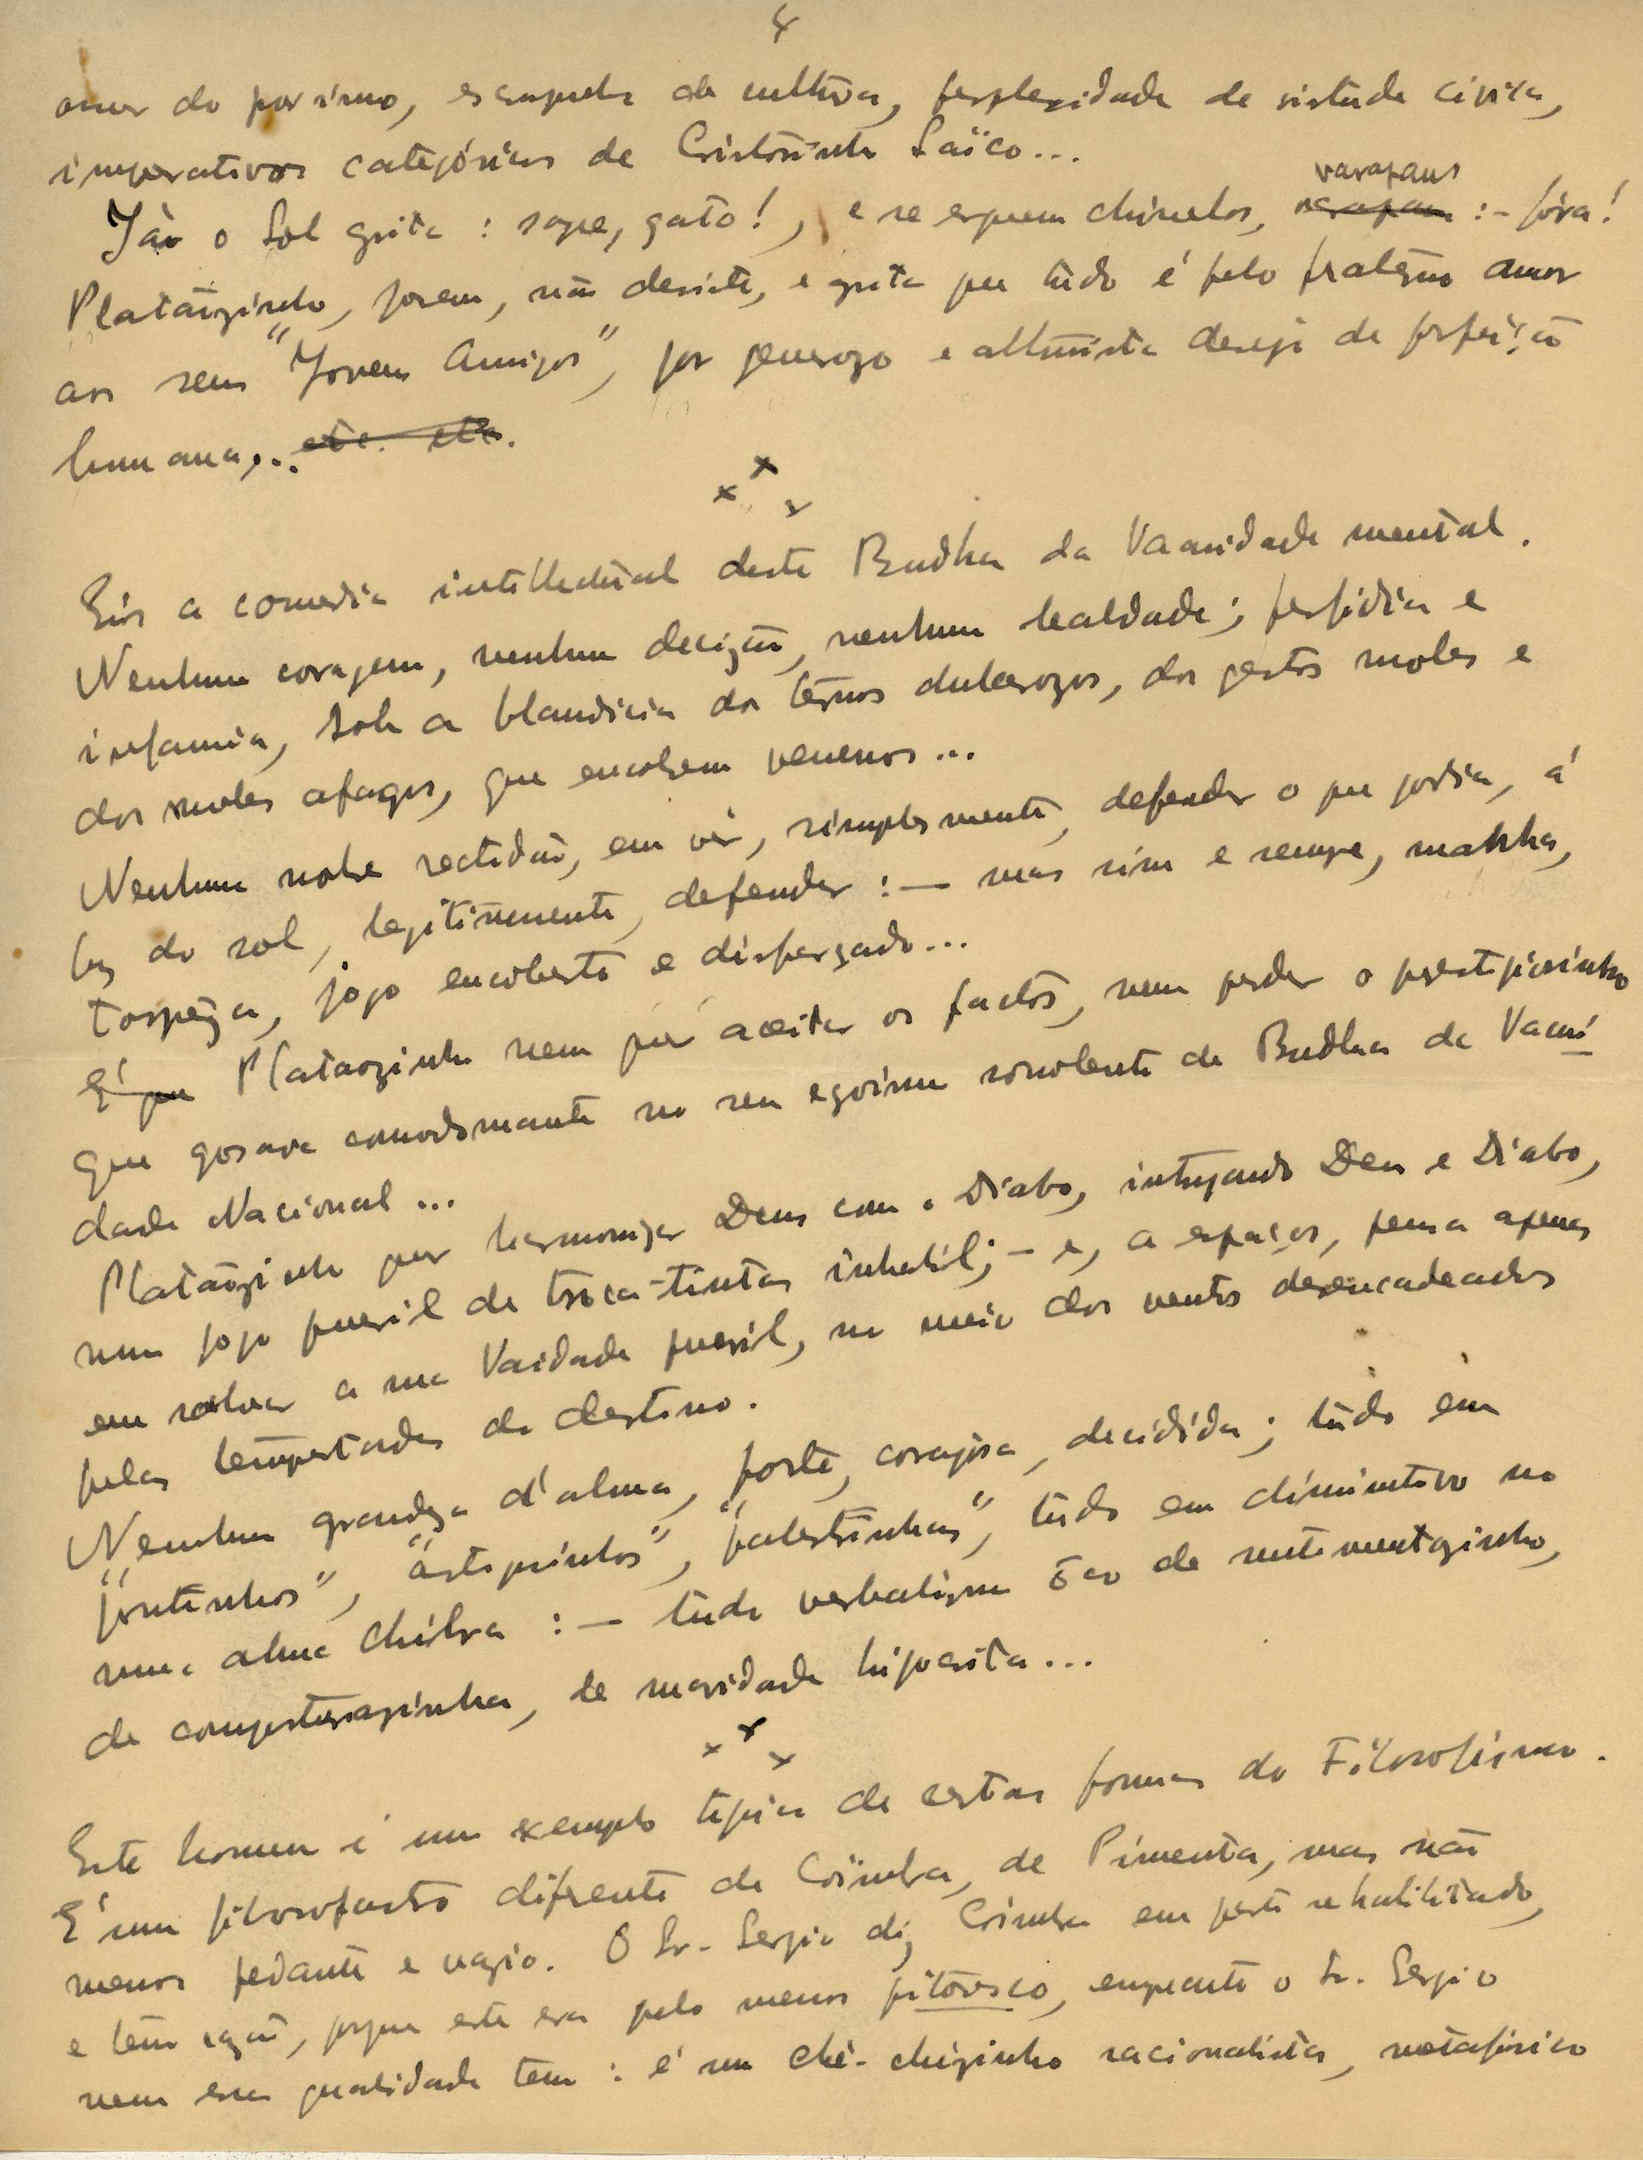 4
amor do proximo, escrupulo de cultura, perplexidade de virtude civica,
imperativos categóricos de Cristosinho Laïco...
Já o Sol grita: sape, gato!, e se erguem chinelos, varapaus :- fóra!
Platãozinho, porem, não desiste, e grita que tudo é pelo fraterno amor
aos seus "Jovens Amigos", por generozo e altruista desejo de perfeição
humana,... etc. etc.
x x x
Eis a comedia intellectual deste Budha da Vacuidade mental.
Nenhuma coragem, nenhuma decizão, nenhuma lealdade; perfidia e
infamia, sob a blandicia dos termos dulcerozos, dos gestos moles e
dos moles afagos, que encobrem venenos...
Nenhuma nobre rectidão, em vir, simplesmente, defender o que podia, á
luz do sol, legitimamente, defender :- mas sim e sempre, manha,
torpeza, jogo encoberto e disfarçado...
É que Platãozinho nem quer aceitar os factos, nem perder o prestigiosinho
que gosava comodamente no seu egoismo sonolento de Budha da Vacui-
dade Nacional...
Platãozinho quer harmonizar Deus com o Diabo, intrujando Deus e Diabo,
num jogo pueril de troca-tintas inhabil; - e, a espaços, pensa apenas
em salvar a sua Vaidade pueril, no meio dos ventos desencadeados
pelas tempestades do destino.
Nenhuma grandeza d'alma, forte, corajosa, decidida; tudo em
"pontinhos", "artiguinhos", "palestrinhas", tudo em diminutivo na
numa alma chilra :- tudo verbalismo ôco de sentimentozinho,
de composturazinha, de suavidade hipocrita...
x x x
Este homem é um exemplo tipico de certas formas do Filosofismo.
É um filosofastro diferente de Coimbra, de Pimenta, mas não
menos pedante e vazio. O Sr. Sergio diz Coimbra em parte rehabilitado,
e tem razão, porque este era pelo menos pitoresco, emquanto o Sr. Sergio
nem essa qualidade tem : é um ché-chézinho racionalista, metafisico